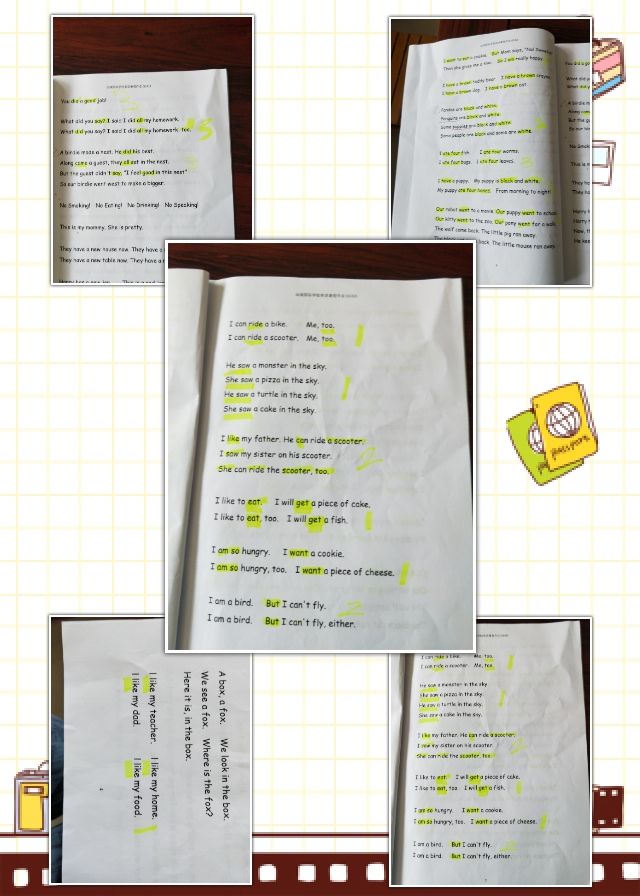 You did a good job!
What did you say? I said I did all my homework.
What did you say? I said I did all my homework, too.
A birdie made a nest. He did his best.
Along came a guest, they all sat in the nest.
But the guest didn't say, "I feel good in this nest"
So our birdie went west to make a bigger.
No Smoking! No Eating! No Drinking! No Speaking!
This is my mommy. She is pretty.
They have a new house now. They have a
They have a new table now. They have a
I want to eat a cookie. But Mom says,
Then she gives me a kiss. So I will really happy.
I have a brown teddy bear. I have a brown crayon.
I have a brown dog. I have a brown cat.
Pandas are black and white.
Penguins are black and white.
Some puppies are black and white.
Some people are black and some are white.
I ate four fish. I ate four worms.
I ate four bugs. I ate four leaves.
I have a puppy. My puppy is black and white.
My puppy ate four bones. From morning to night!
Our robot went to a movie. Our puppy went to school.
Our kitty went to the zoo. Our pony went for a walk.
The wolf came back. The little pig ran away.
back. The little mouse ran away.
I can ride a bike. Me, too.
I can ride a scooter. Me, too.
He saw a monster in the sky.
She saw a pizza in the sky.
He saw a turtle in the sky.
She saw a cake in the sky.
I like my father. He can ride a scooter.
I saw my sister on his scooter.
She can ride the scooter, too.
I like to eat. I will get a piece of cake.
I like to eat, too. I will get a fish.
I am so hungry. I want a cookie.
I am so hungry, too. I want a piece of cheese.
I am a bird. But I can't fly.
I am a bird. But I can't fly, either.
A box, a fox. We look in the box.
We see a fox. Where is the fox?
Here it is, in the box.
I like my teacher. I like my home.
I like my dad. I like my food.
I can ride a bike. Me, too.
I can ride a scooter. Me, too.
He saw a monster in the sky.
She saw a pizza in the sky.
He saw a turtle in the sky.
She saw a cake in the sky.
I like my father. He can ride a scooter.
I saw my sister on his scooter.
She can ride the scooter, too.
I like to eat. I will get a piece of cake.
I like to eat, too. I will get a fish.
I am so hungry. I want a cookie.
I am so hungry, too. I want a piece of cheese.
I am a bird. But I can't fly.
I am a bird. But I can't fly, either.
passport